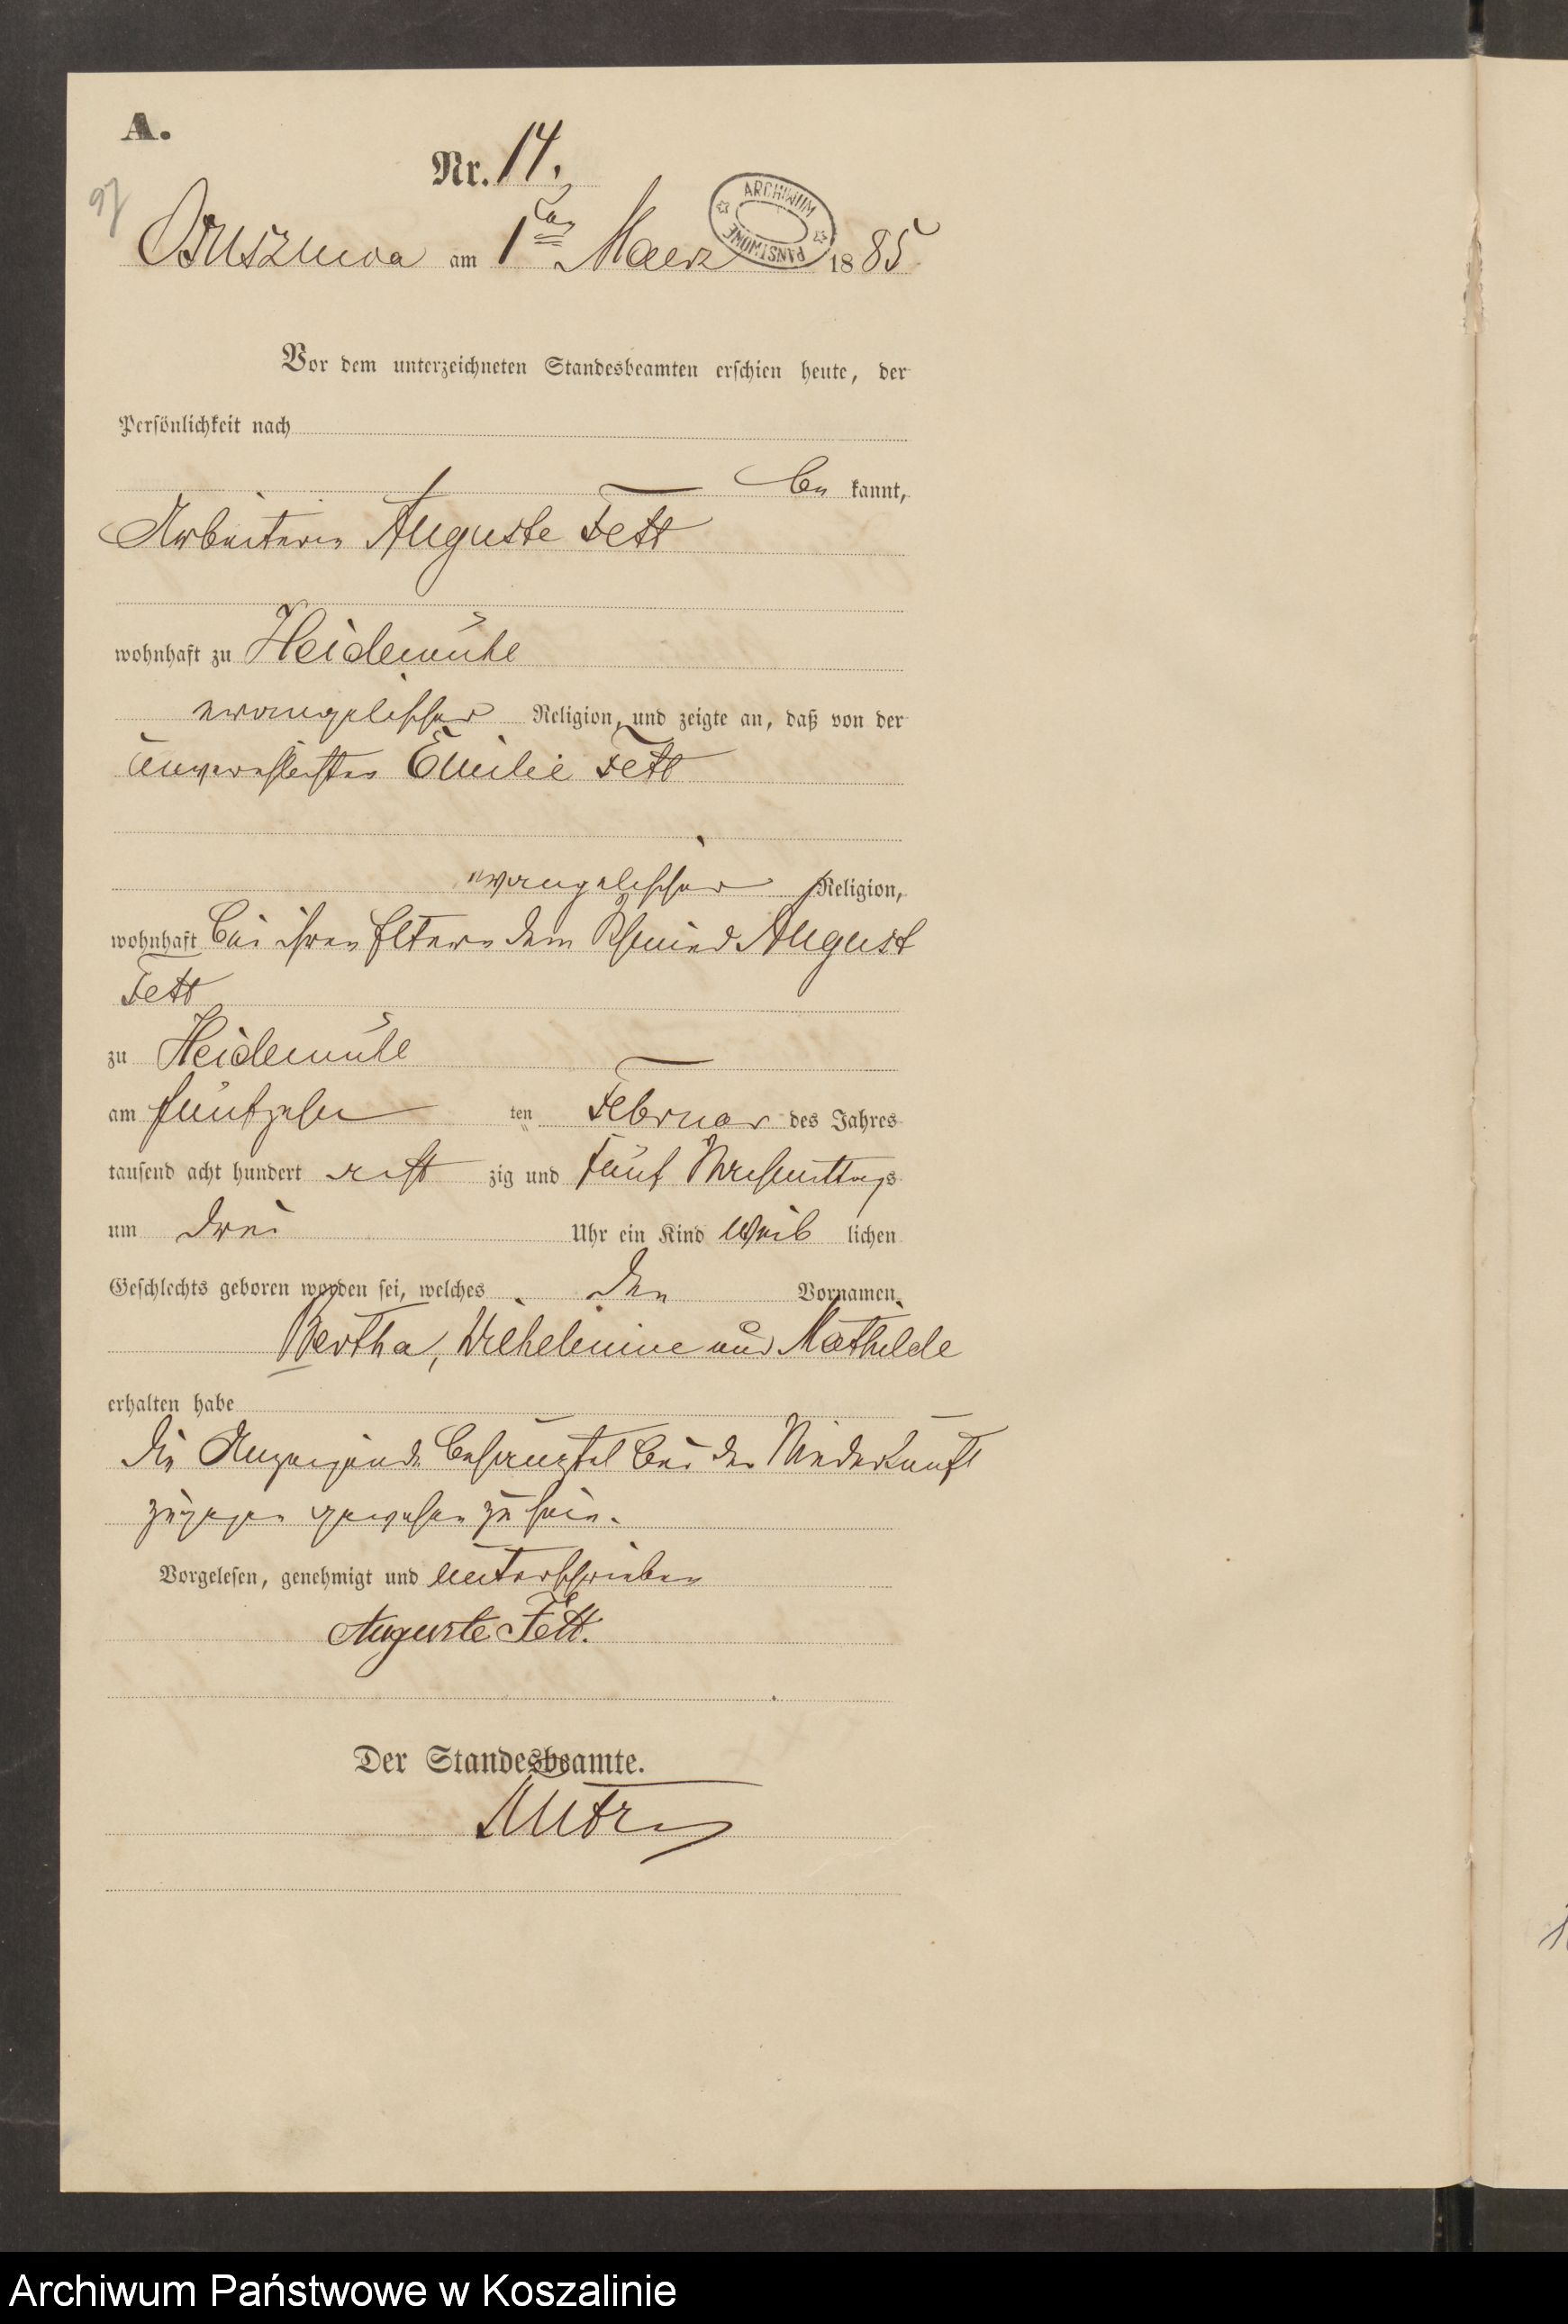 A.
Nr. 14.
97
am 1ten Maerz 1885
ARCHIWUM PAŃSTWOWE
Vor dem unterzeichneten Standesbeamten erschien heute, der
Persönlichkeit nach
be kannt,
Arbeiterin Auguste Fett
wohnhaft zu Heidemühl
evangelischer Religion, und zeigte an, daß von der
unverehelichten Emilie Fett
evangelischer Religion,
wohnhaft bei ihren Eltern dem Schmied August
Fett
zu Heidemühl
am fünfzehn ten Februar des Jahres
tausend acht hundert acht zig und fünf Nachmittags
um drei Uhr ein Kind weib lichen
Geschlechts geboren worden sei, welches den Vornamen
Bertha, Wilhelmine und Mathilde
erhalten habe
Die Anzeigende behauptet bei der Niederkunft
zugegen gewesen zu sein.
Vorgelesen, genehmigt und unterschrieben
Auguste Fett.
Der Standesbeamte.
Archiwum Państwowe w Koszalinie